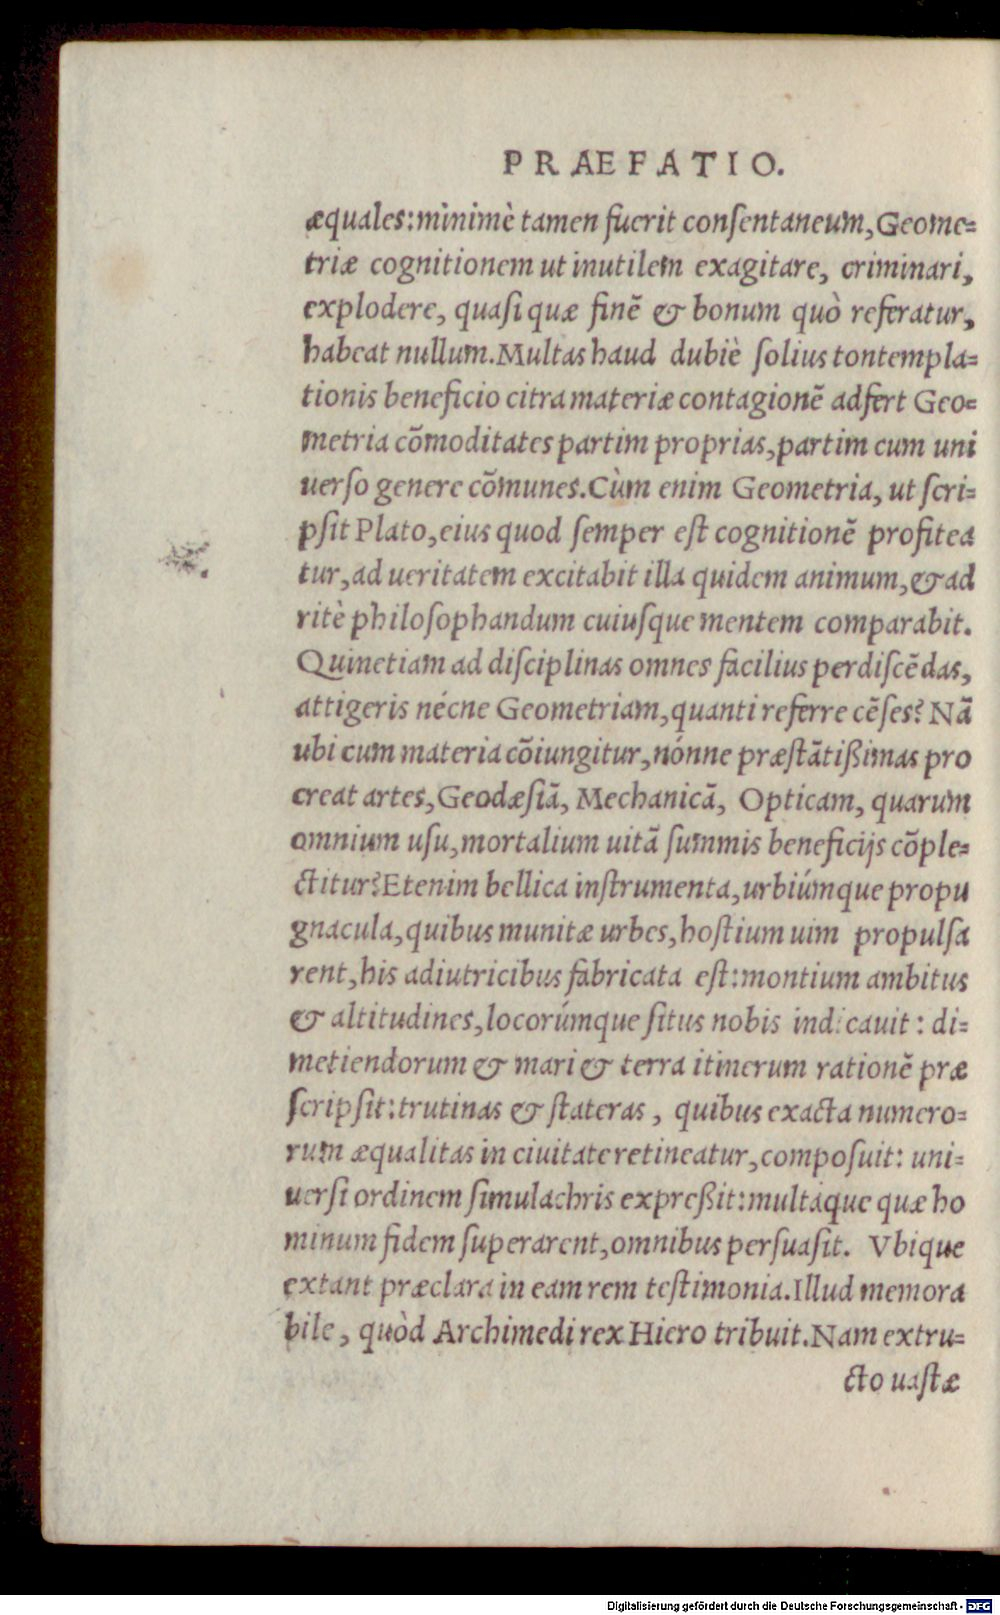 PRAEFATIO.
æquales: minimè tamen fuerit conſentaneum, Geome-
triæ cognitionem ut inutilem exagitare, criminari,
explodere, quaſi quæ finẽ & bonum quò referatur,
habeat nullum. Multas haud dubiè ſolius tontempla-
tionis beneficio citra materiæ contagionẽ adfert Geo-
metria cõmoditates partim proprias, partim cum uni
uerſo genere cõmunes. Cùm enim Geometria, ut ſcri-
pſit Plato, eius quod ſemper eſt cognitionẽ profitea
tur, ad ueritatem excitabit illa quidem animum, & ad
ritè philoſophandum cuiuſque mentem comparabit.
Quinetiam ad diſciplinas omnes facilius perdiſcẽdas,
attigeris nécne Geometriam, quanti referre cẽſes? Nã
ubi cum materia cõiungitur, nónne præſtãtißimas pro
creat artes, Geodæſiã, Mechanicã, Opticam, quarum
omnium uſu, mortalium uitã ſummis beneficijs cõple-
ctitur? Etenim bellica inſtrumenta, urbiúmque propu
gnacula, quibus munitæ urbes, hoſtium uim propulſa
rent, his adiutricibus fabricata eſt: montium ambitus
& altitudines, locorúmque ſitus nobis indicauit: di-
metiendorum & mari & terra itinerum rationẽ præ
ſcripſit: trutinas & ſtateras, quibus exacta numero-
rum æqualitas in ciuitate retineatur, compoſuit: uni-
uerſi ordinem ſimulachris expreßit: multáque quæ ho
minum fidem ſuperarent, omnibus perſuaſit. Vbique
extant præclara in eam rem teſtimonia. Illud memora
bile, quòd Archimedi rex Hiero tribuit. Nam extru-
cto uaſtæ
Digitalisierung gefördert durch die Deutsche Forschungsgemeinschaft - DFG